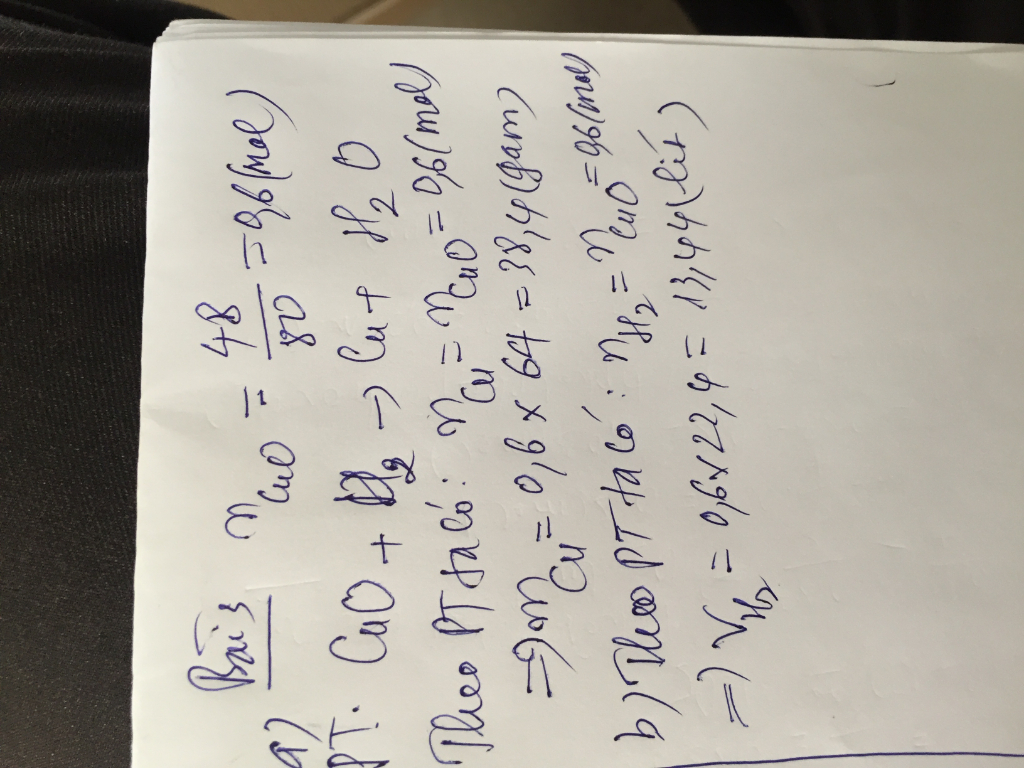 Bài 3 n CuO = 48/80 = 0,6 (mol)
a)
PT: CuO + H2 → Cu + H2O
Theo PT ta có: nCu = nCuO = 0,6 (mol)
=> mCu = 0,6 x 64 = 38,4 (gam)
b) Theo PT ta có: nH2 = nCuO = 0,6 (mol)
=> VH2 = 0,6 x 22,4 = 13,44 (lít)